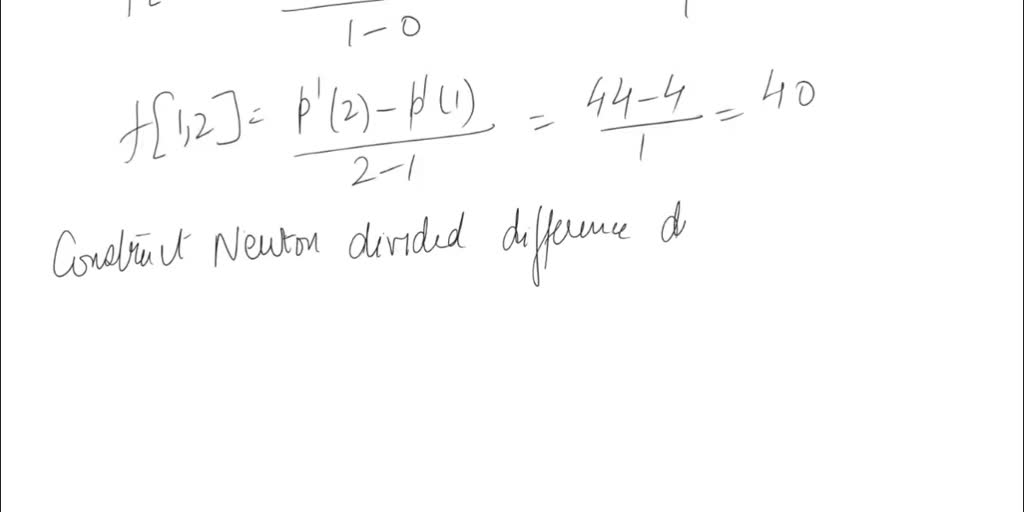 1-0
f[1,2] = p'(2)-p'(1) / 2-1 = 44-4 / 1 = 40
Construct Newton divided difference d